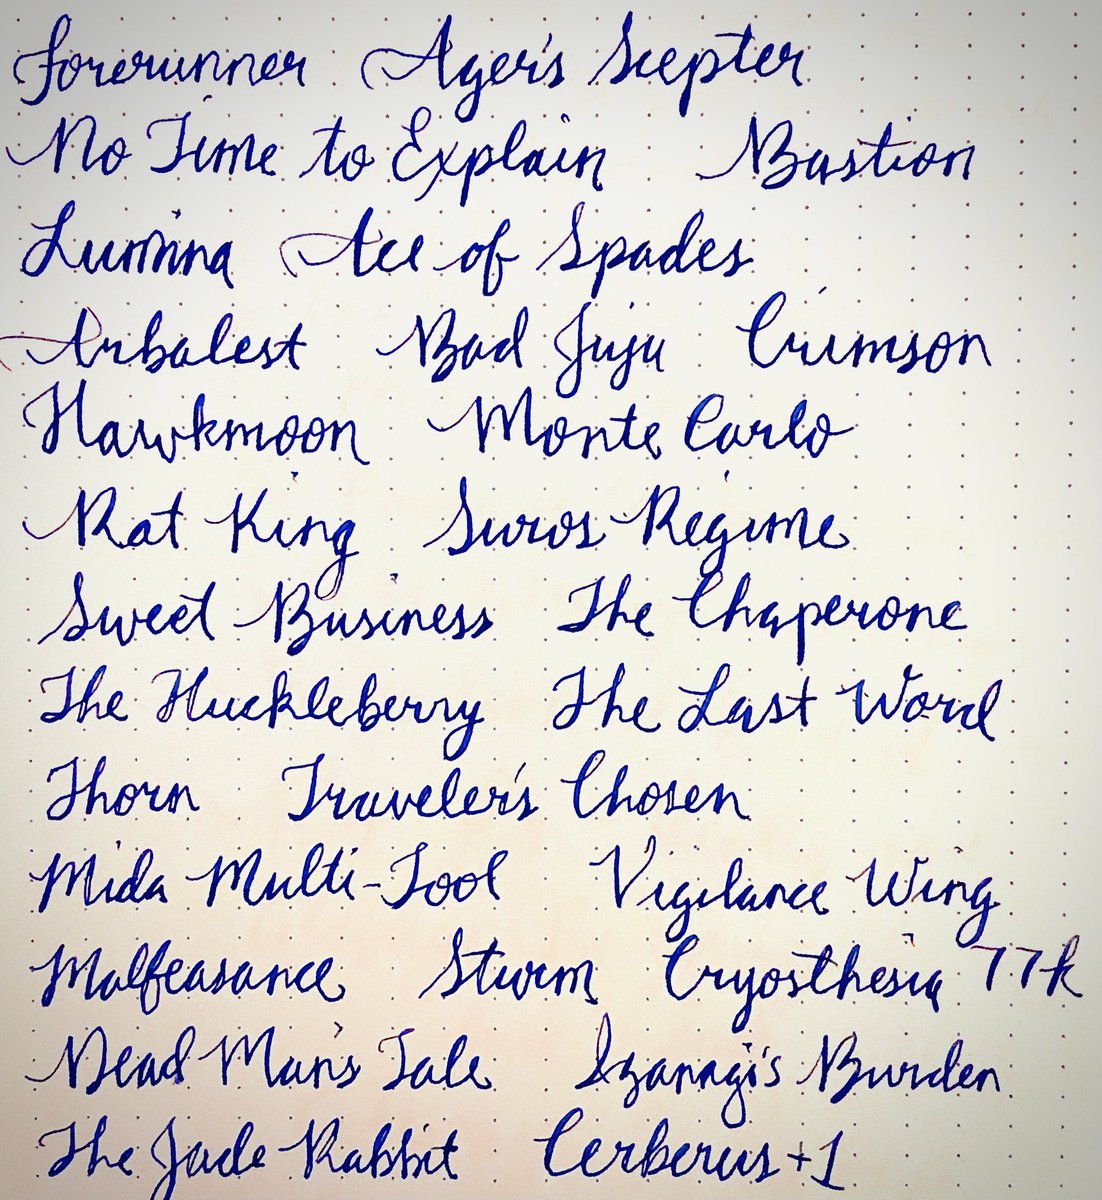 Forerunner Ager's Scepter
No Time to Explain Bastion
Lumina Ace of Spades
Arbalest Bad Juju Crimson
Hawkmoon Monte Carlo
Rat King Suros Regime
Sweet Business The Chaperone
The Huckleberry The Last Word
Thorn Traveler's Chosen
Mida Multi-Tool Vigilance Wing
Malfeasance Sturm Cryosthesia 77k
Dead Man's Tale Izanagi's Burden
The Jade Rabbit Cerberus+1